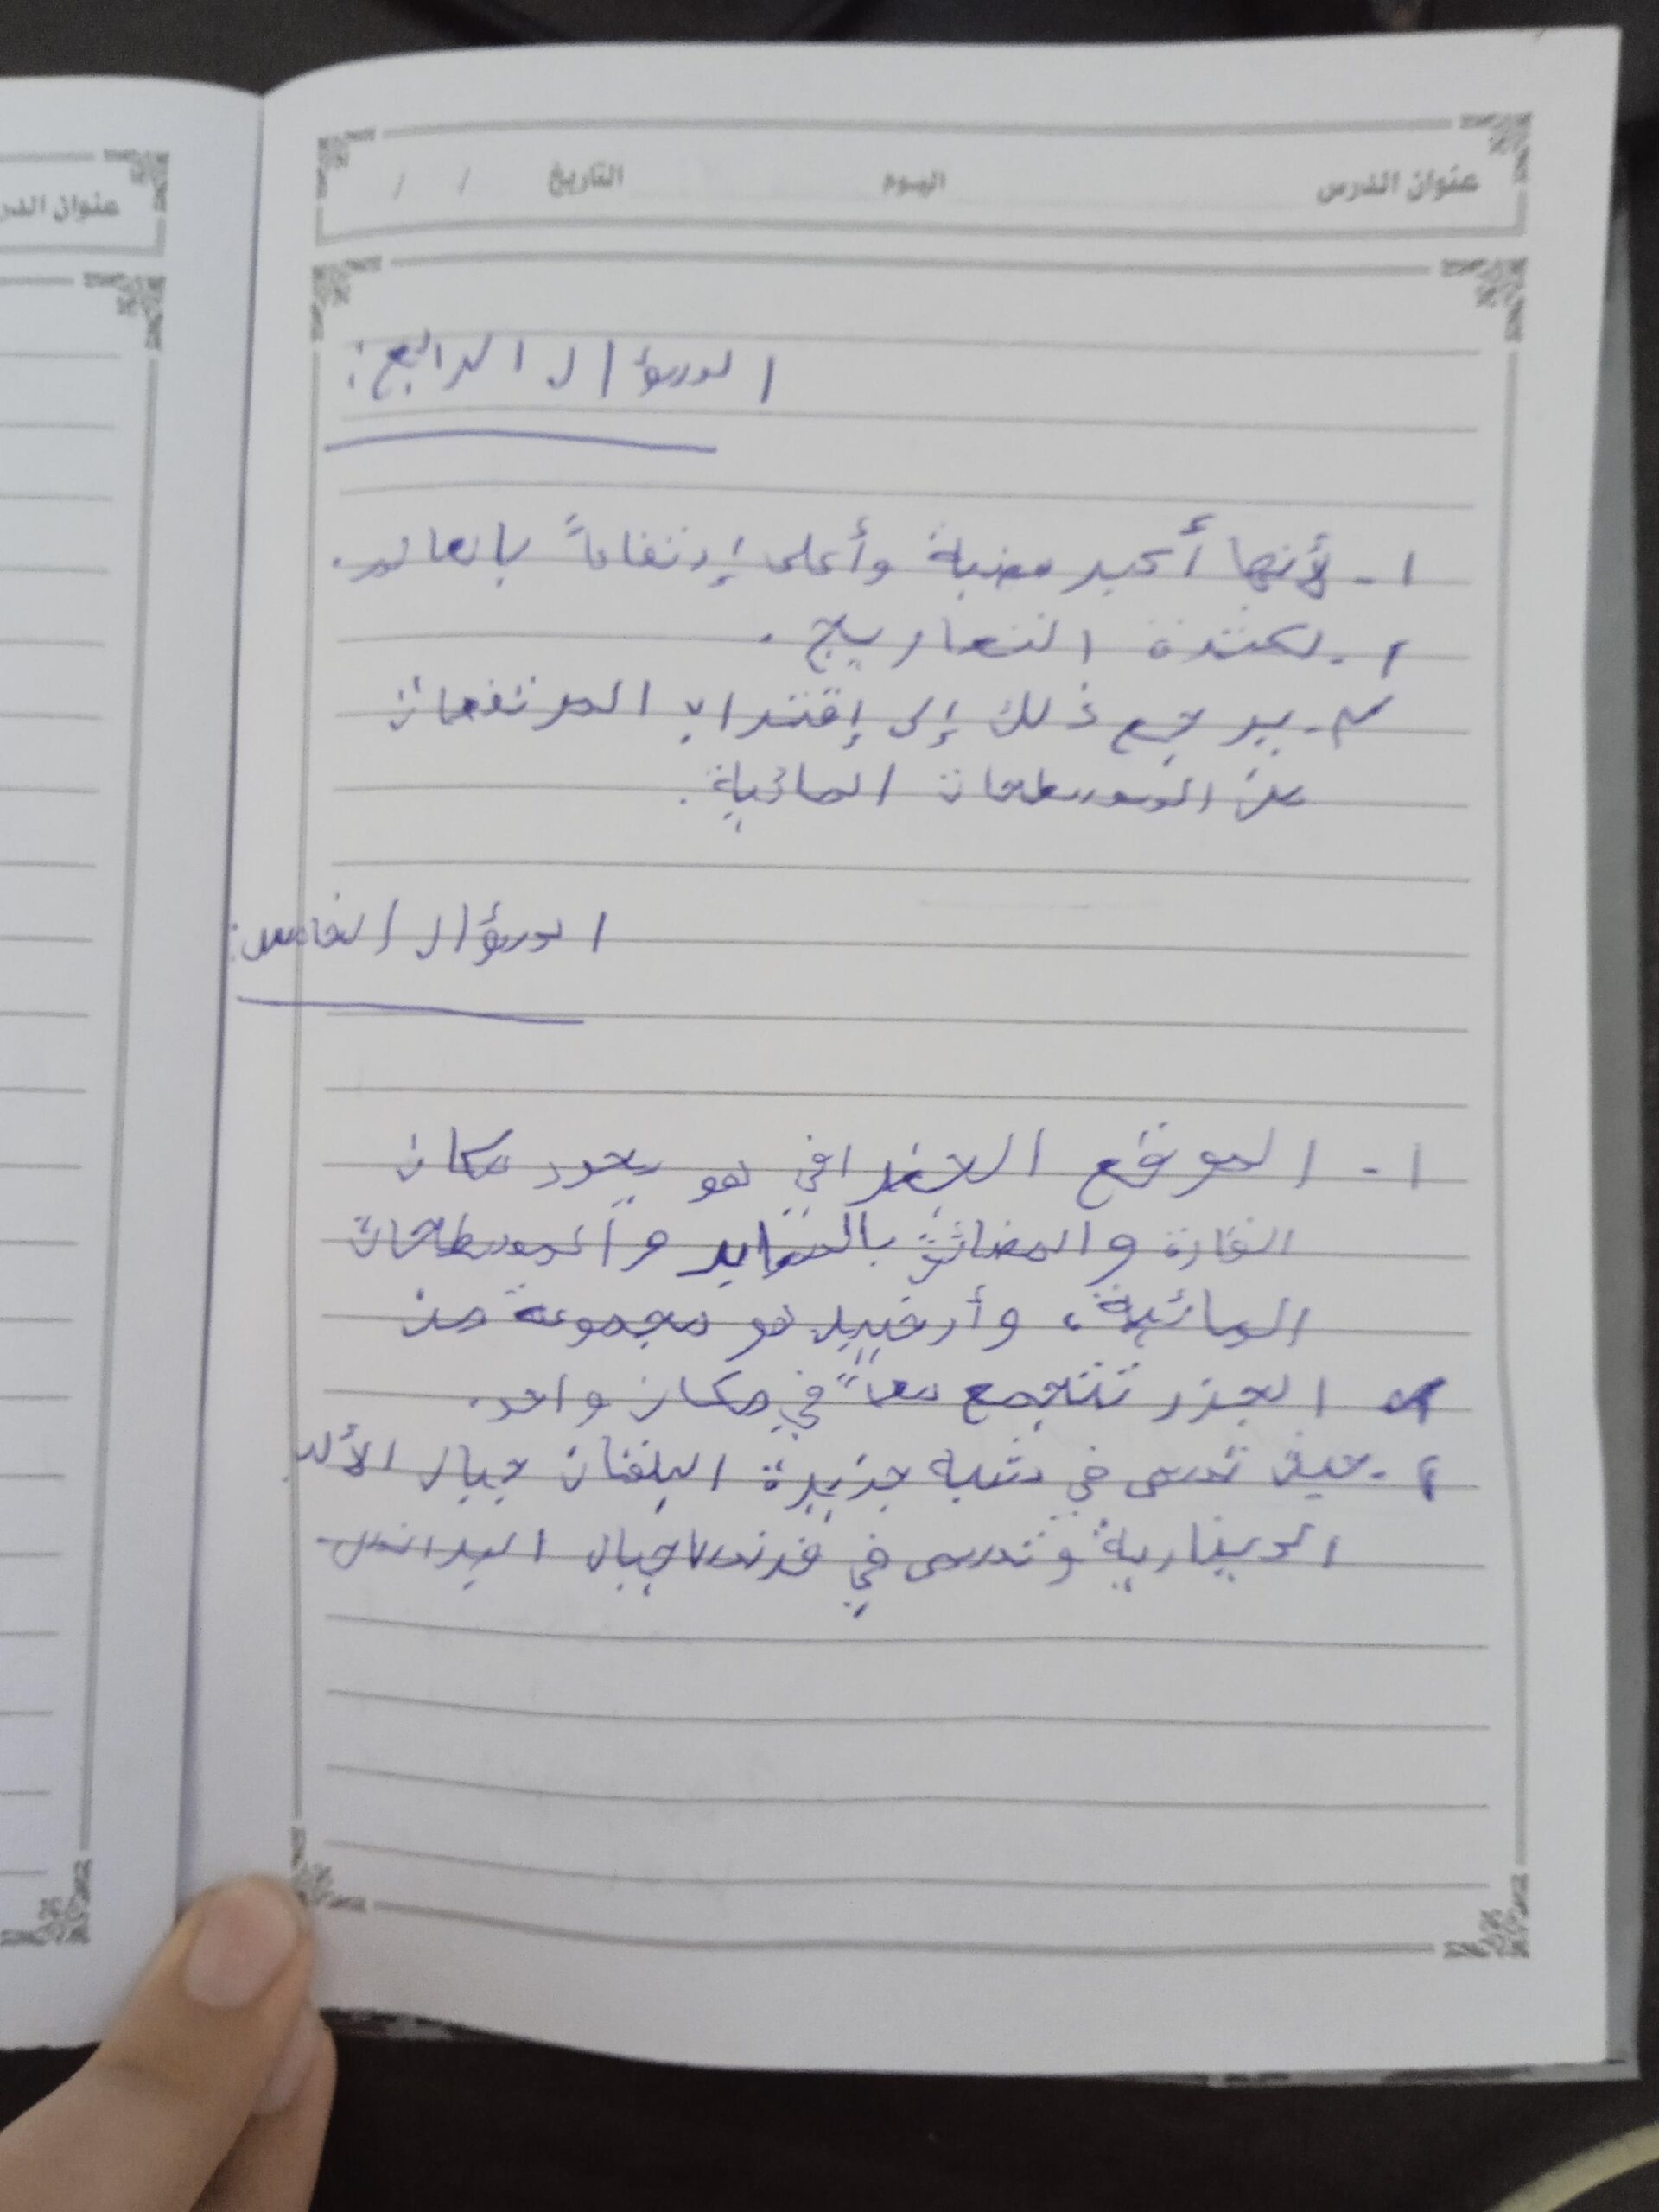 عنوان الدرس اليوم التاريخ / /
عنوان الدر
السؤال الرابع:
١- لأنها أكبر هضبة وأعلى إرتفاعاً بالعالم.
٢- لكثرة التعاريج.
٣- يرجع ذلك إلى إقتراب المرتفعات
من المسطحات المائية.
السؤال الخامس:
١- الموقع الجغرافي هو يحدد مكان
القارة والمضائق والمسطحات
المائية، وأرخبيل هو مجموعة من
الجزر تتجمع معاً في مكان واحد.
٢- حيث تسمى في شبه جزيرة البلقان جبال الألب
الدينارية وتسمى في فرنسا جبال البرانس.